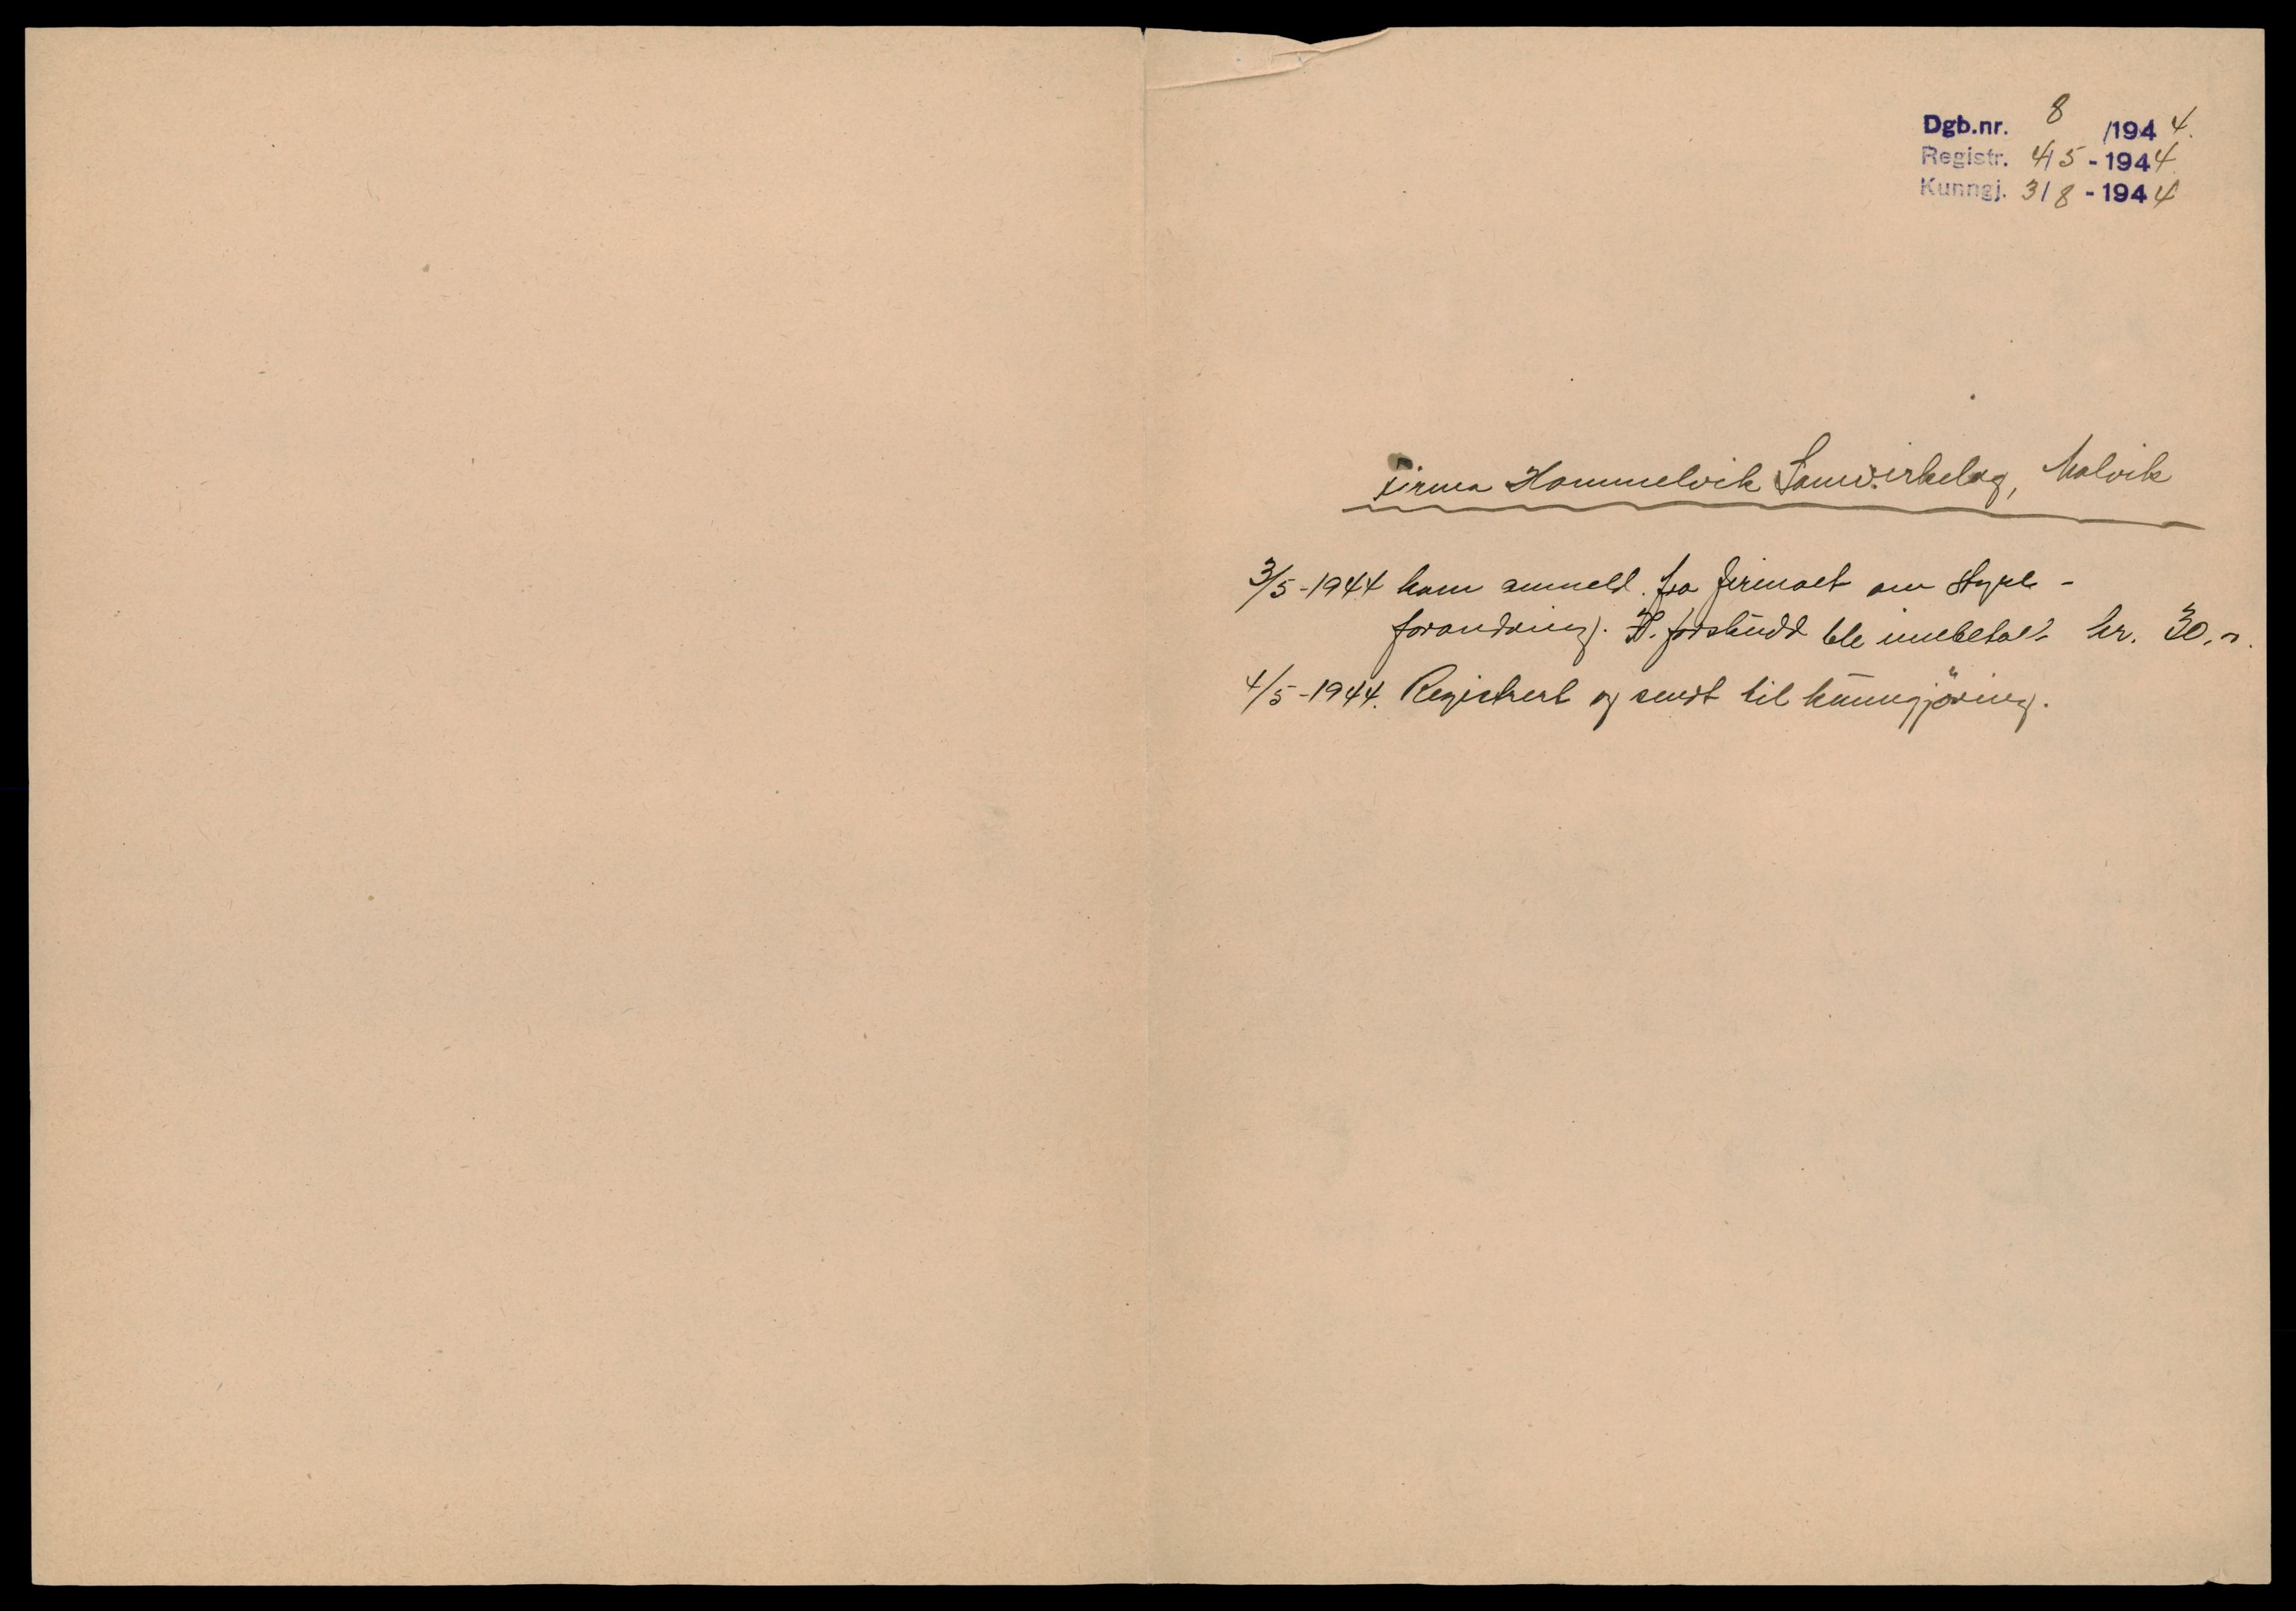 Dgb.nr. 8 /1944.
Registr. 4/5 - 1944
Kunngj. 3/8 - 1944
Firma Hommelvik Samvirkelag, Malvik
3/5-1944 kom anmeld. fra firmaet om styre-
forandring. forskudd ble innbetalt kr. 30,-.
4/5-1944. Registrert og sendt til kunngjöring.